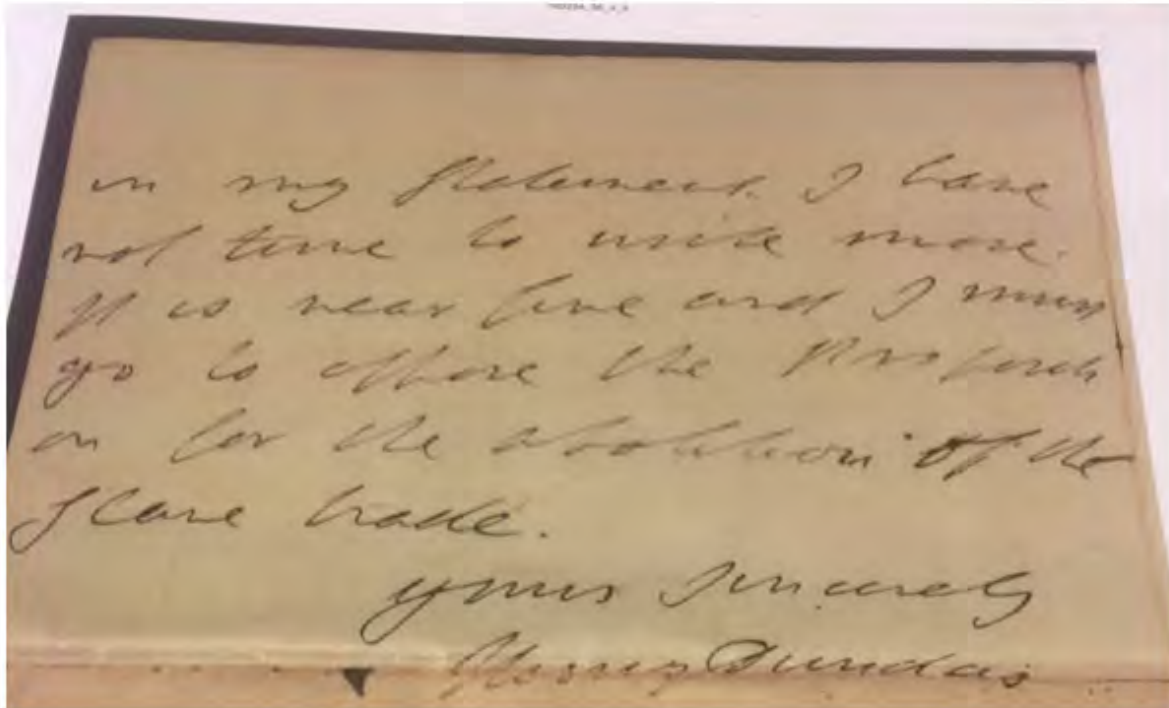 in my statement. I have
not time to write more.
It is near five and I must
go to oppose the
on for the abolition of the
slave trade.
yours sincerely
Henry Dundas